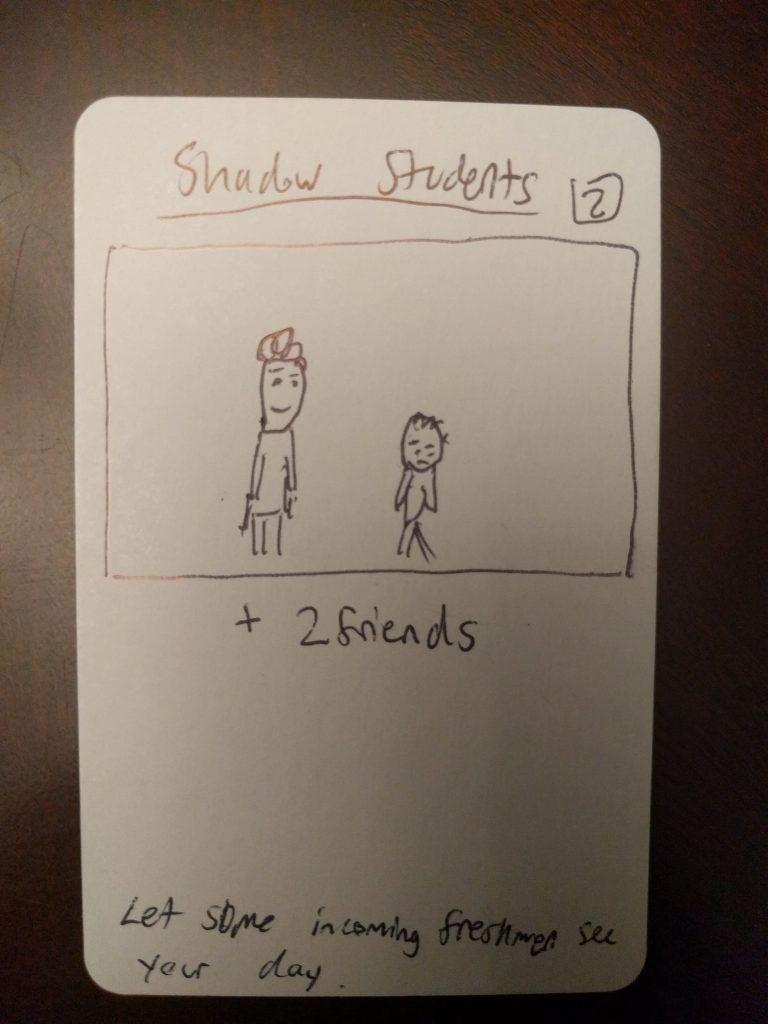 Shadow Students 2
+ 2 friends
Let some incoming freshmen see
your day.